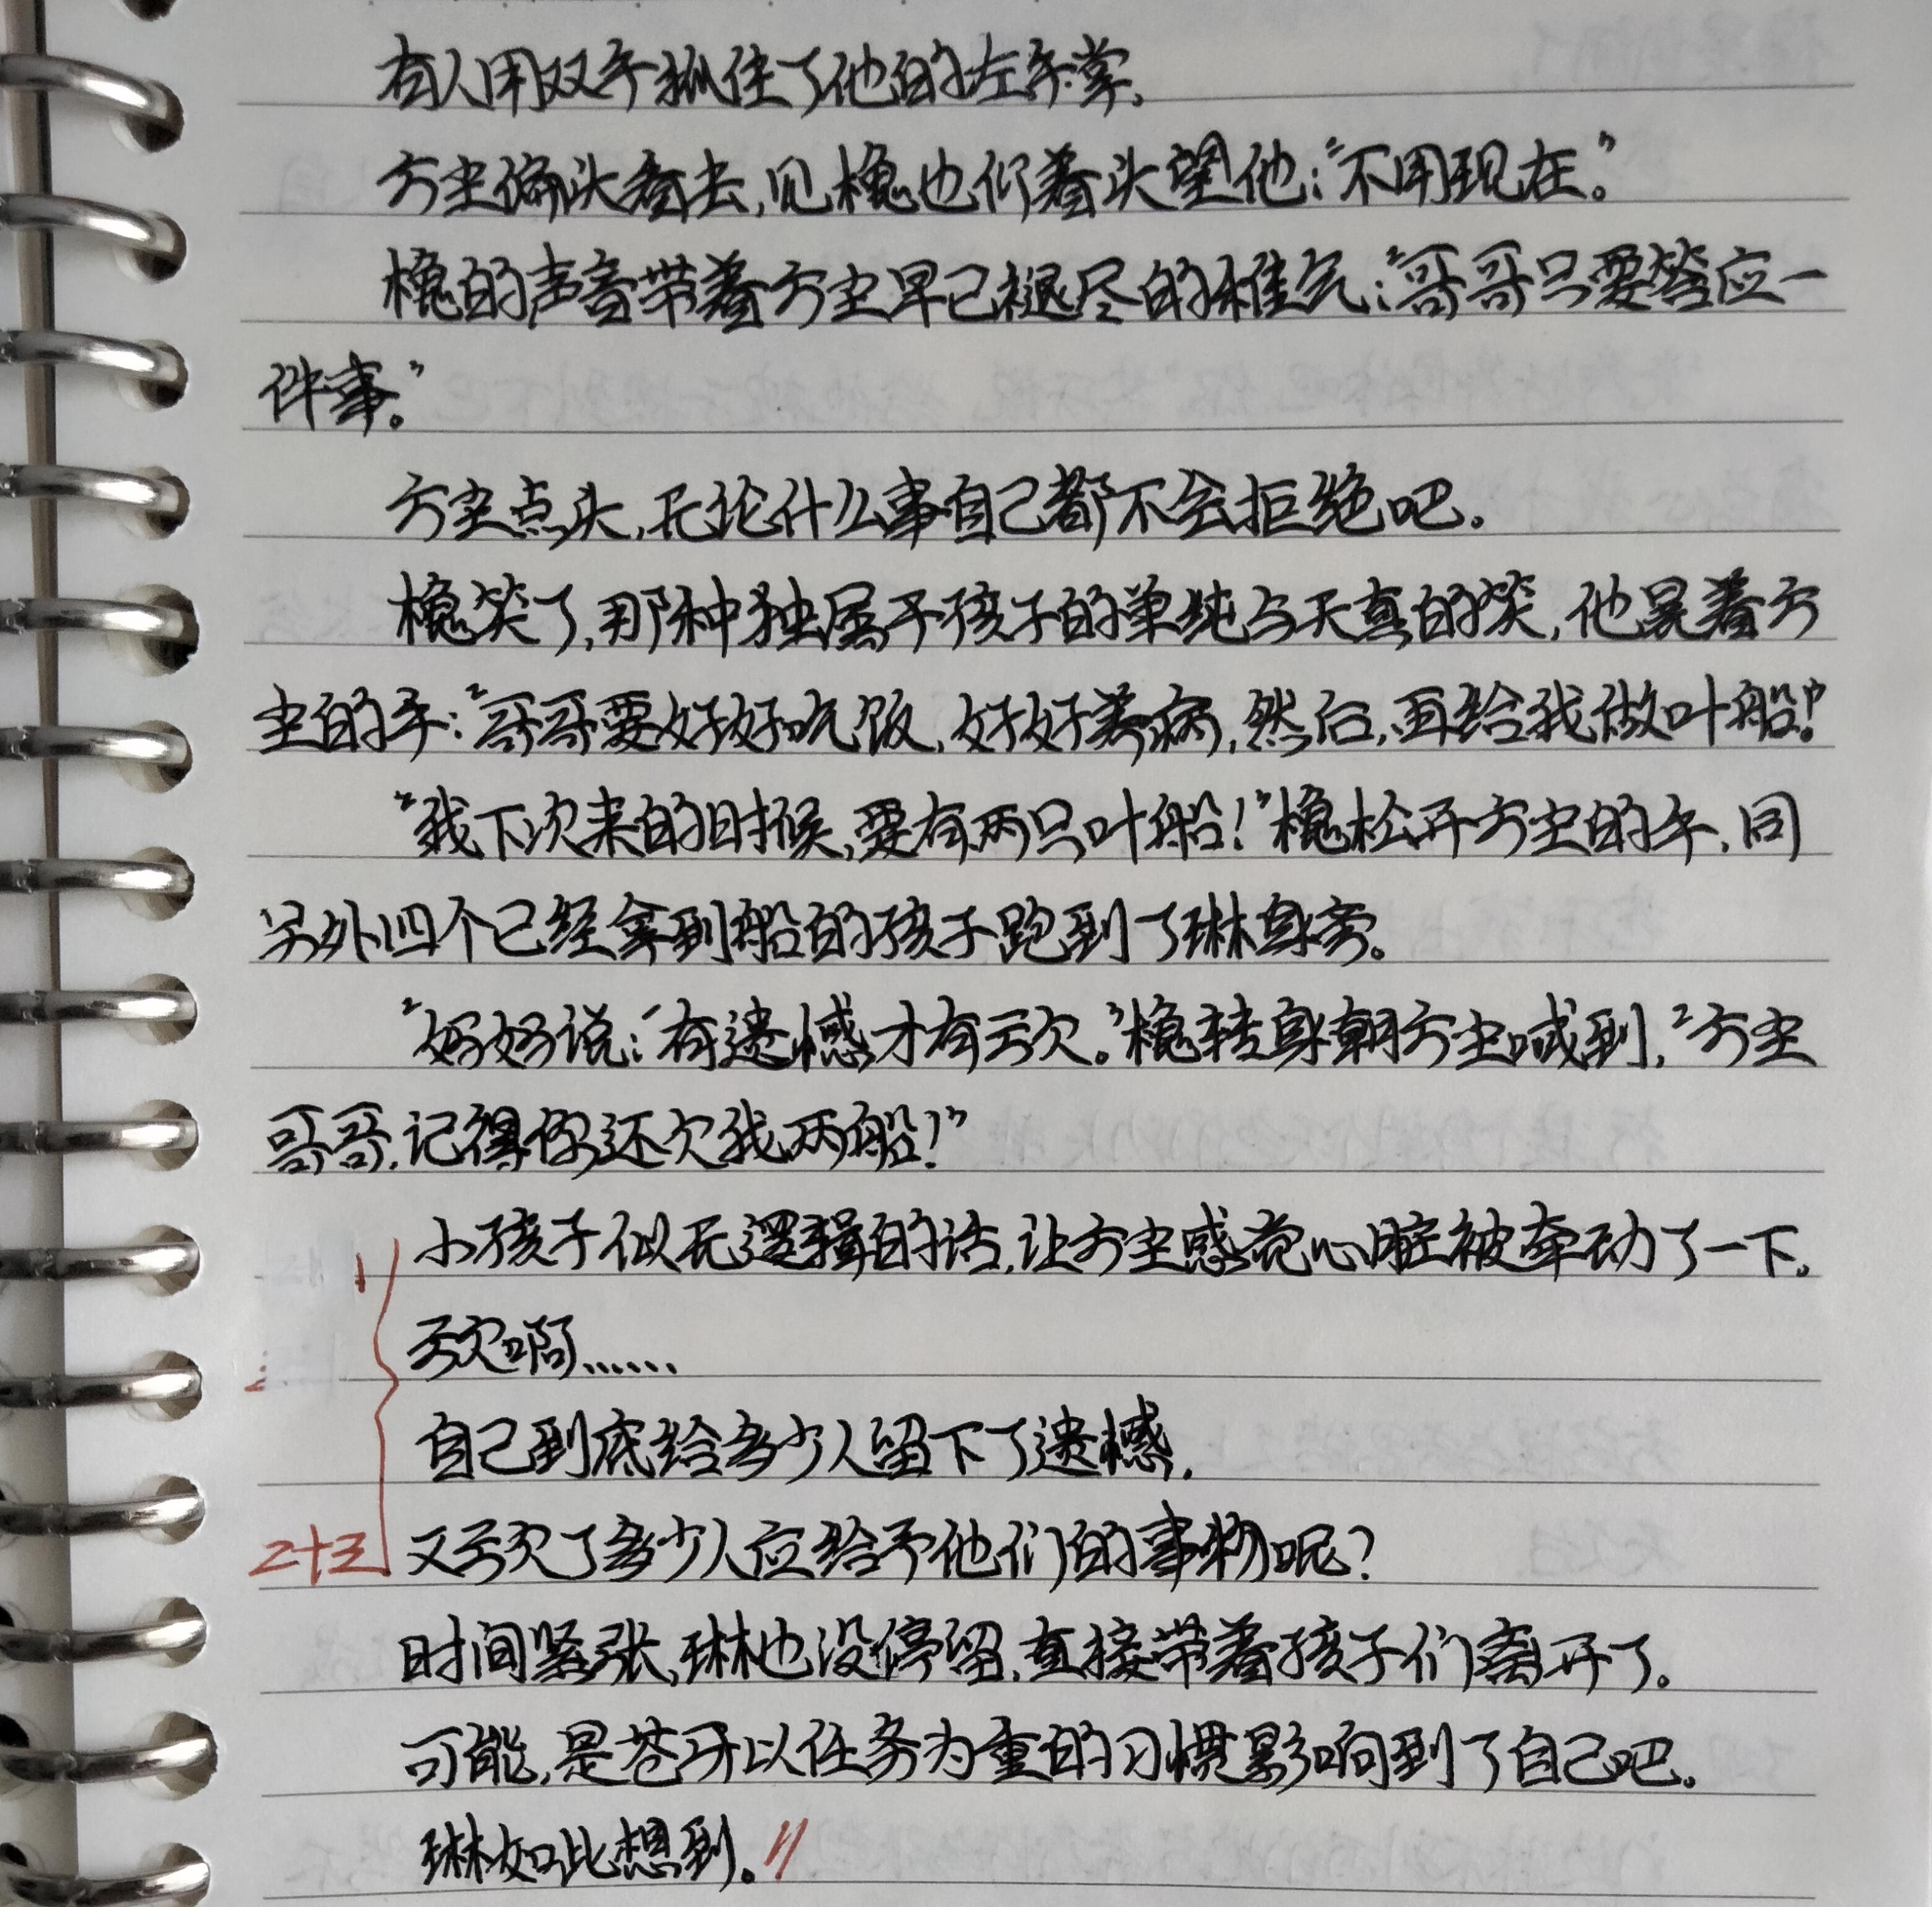 有人用双手抓住了他的左手掌。
方尘偏头看去,见槐也仰着头望他:“不用现在。”
槐的声音带着方尘早已褪尽的稚气:“哥哥只要答应一
件事。”
方尘点头,无论什么事自己都不会拒绝吧。
槐笑了,那种独属于孩子的单纯与天真的笑,他晃着方
尘的手:“哥哥要好好吃饭,好好养病,然后,再给我做叶船!”
“我下次来的时候,要有两只叶船!”槐松开方尘的手,同
另外四个已经拿到船的孩子跑到了琳身旁。
“妈妈说:‘有遗憾才有亏欠。’槐转身朝方尘喊到,“方尘
哥哥,记得你还欠我两船!”
小孩子似无逻辑的话,让方尘感觉心脏被牵动了一下。
亏欠啊……
自己到底给多少人留下了遗憾,
2十三 又亏欠了多少人应给予他们的事物呢?
时间紧张,琳也没停留,直接带着孩子们离开了。
可能,是苍牙以任务为重的习惯影响到了自己吧。
琳如此想到。